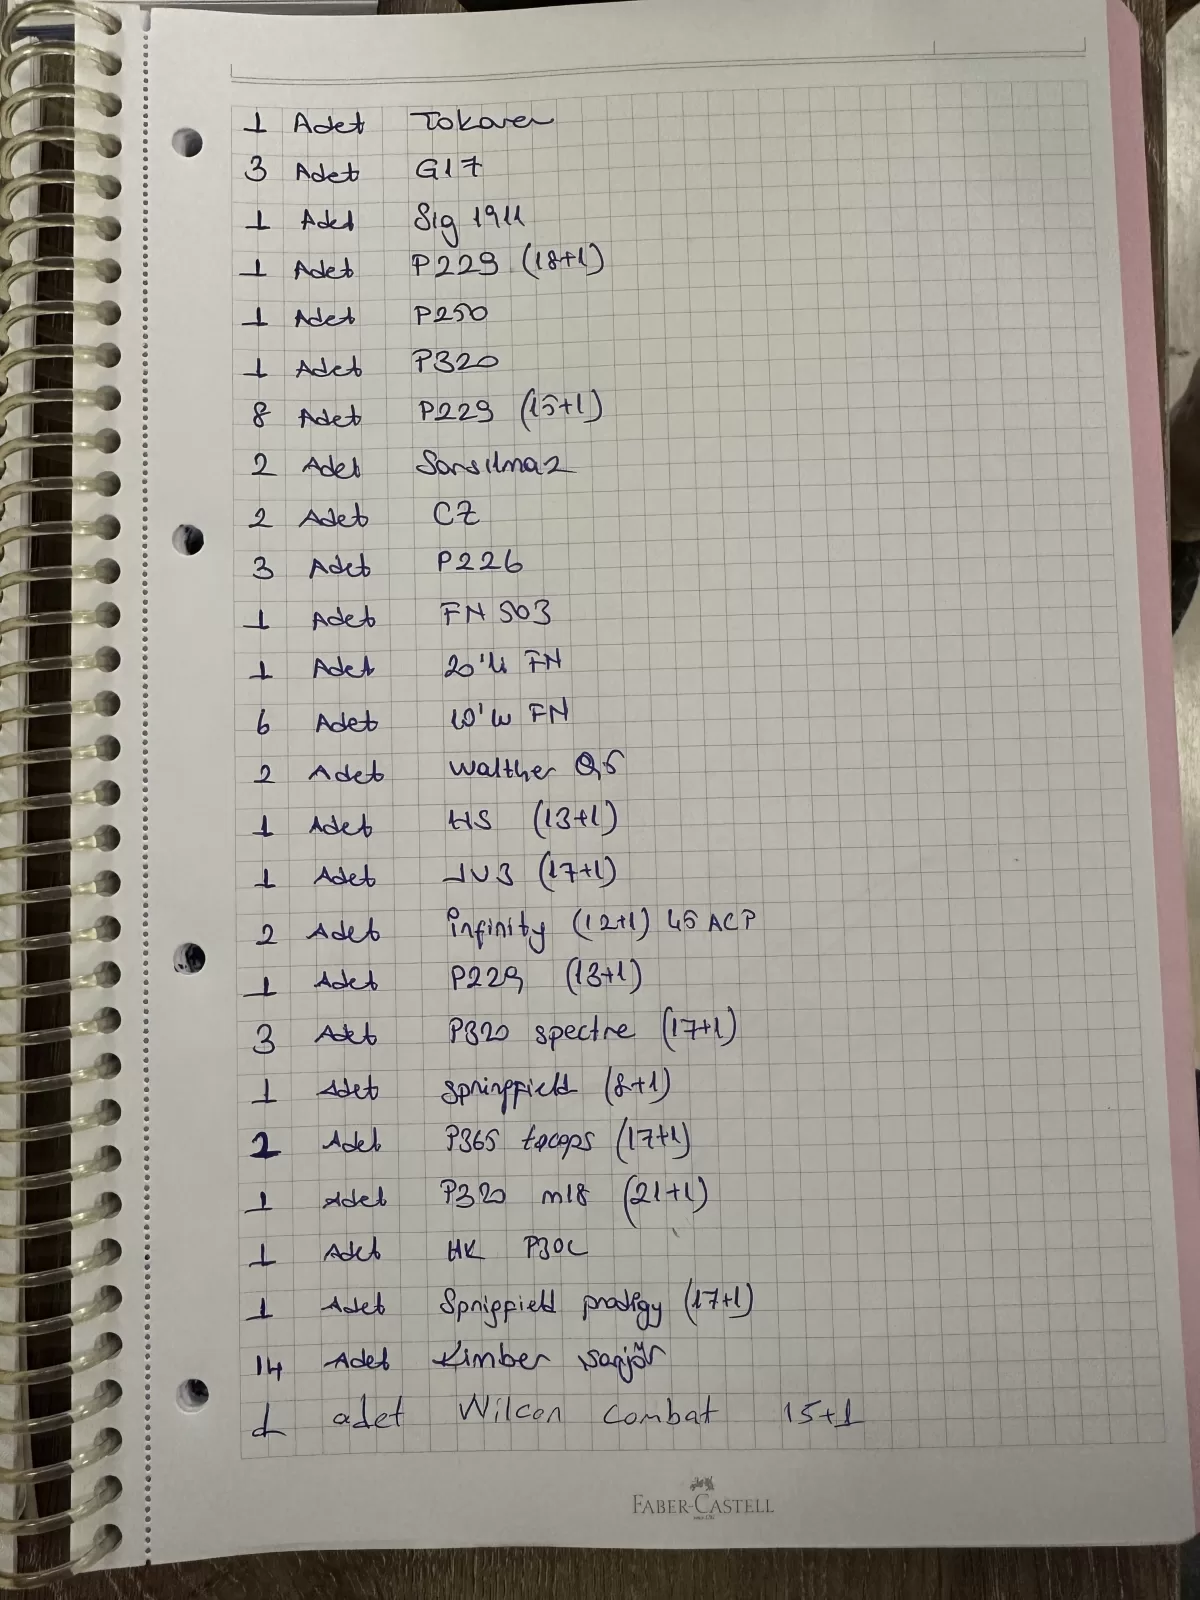 1 Adet Tokarev
3 Adet G17
1 Adet Sig 1911
1 Adet P229 (18+1)
1 Adet P250
1 Adet P320
8 Adet P229 (15+1)
2 Adet Sarsılmaz
2 Adet CZ
3 Adet P226
1 Adet FN 503
1 Adet 20'li FN
6 Adet 10'lu FN
2 Adet Walther Q5
1 Adet HS (13+1)
1 Adet (17+1)
2 Adet infinity (12+1) 45 ACP
1 Adet P229 (13+1)
3 Adet P320 spectre (17+1)
1 Adet springfield (8+1)
2 Adet P365 tacops (17+1)
1 Adet P320 m18 (21+1)
1 Adet HK P30L
1 Adet Springfield prodigy (17+1)
14 Adet Kimber şarjör
1 adet Wilson Combat 15+1
FABER-CASTELL